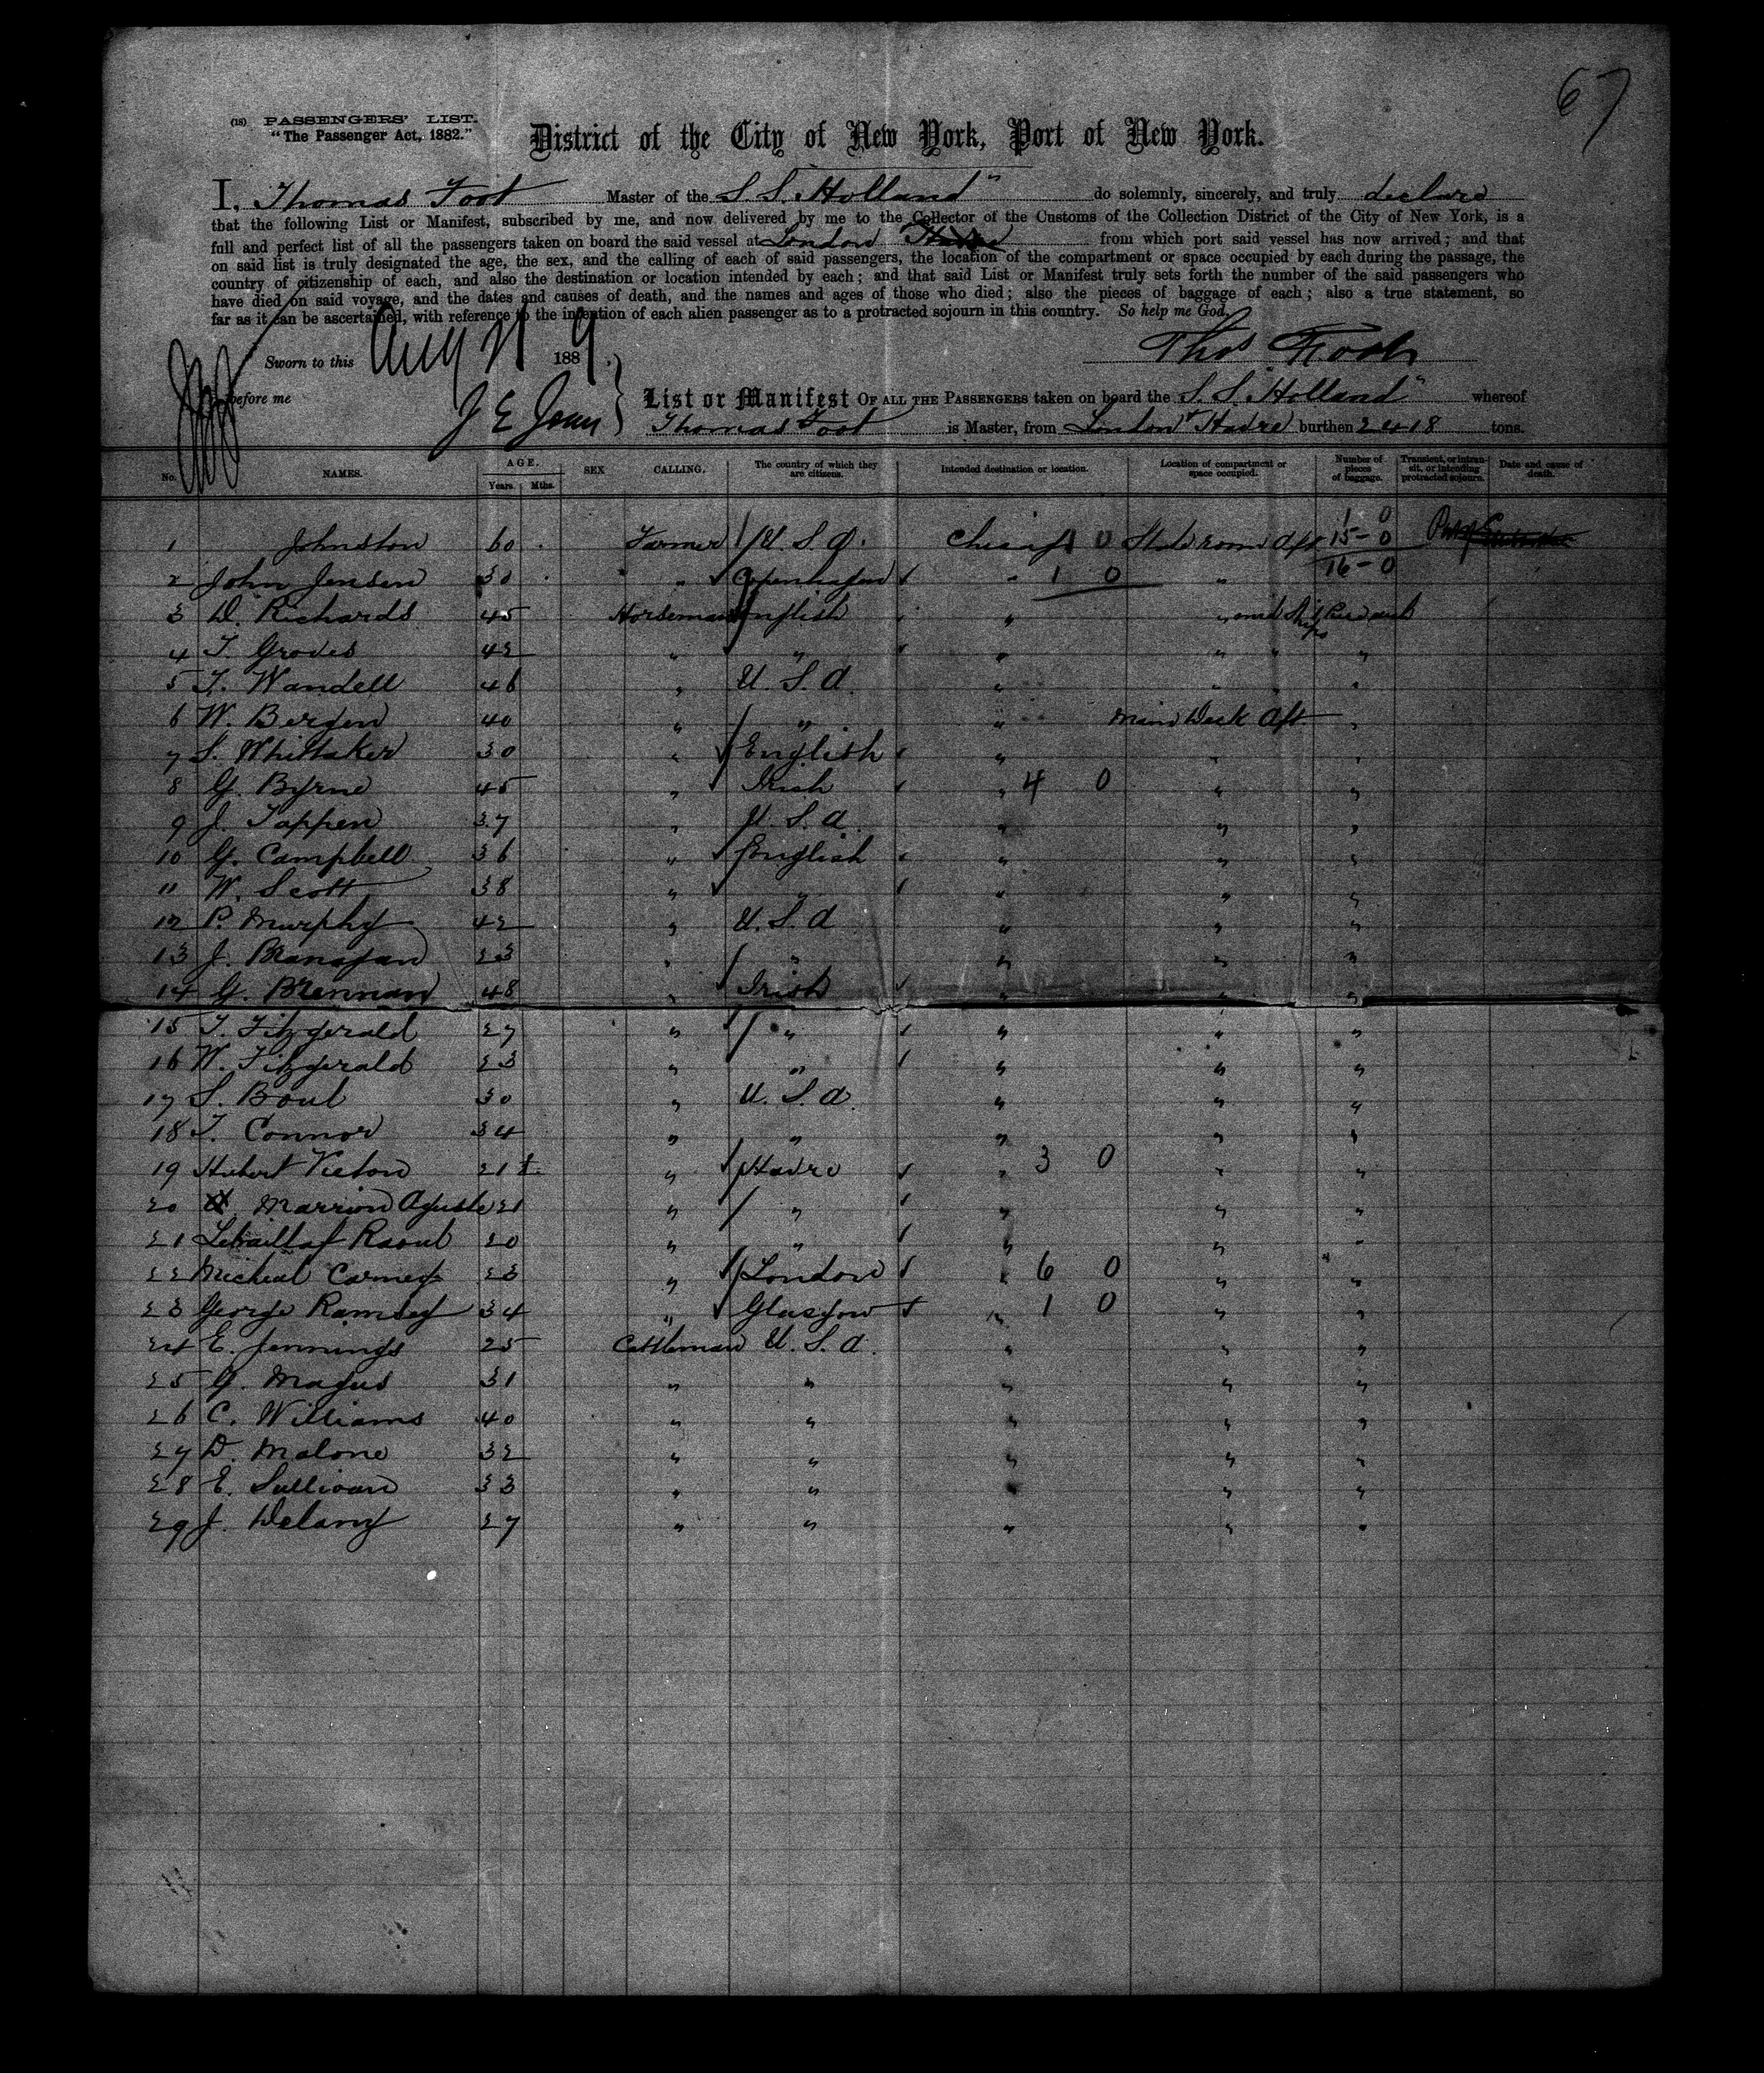 67
(18) PASSENGERS' LIST.
"The Passenger Act, 1882."
District of the City of New York, Port of New York.
I, Thomas Foot Master of the S.S. "Holland" do solemnly, sincerely, and truly declare
that the following List or Manifest, subscribed by me, and now delivered by me to the Collector of the Customs of the Collection District of the City of New York, is a
full and perfect list of all the passengers taken on board the said vessel at London Havre from which port said vessel has now arrived; and that
on said list is truly designated the age, the sex, and the calling of each of said passengers, the location of the compartment or space occupied by each during the passage, the
country of citizenship of each, and also the destination or location intended by each; and that said List or Manifest truly sets forth the number of the said passengers who
have died on said voyage, and the dates and causes of death, and the names and ages of those who died; also the pieces of baggage of each; also a true statement, so
far as it can be ascertained, with reference to the intention of each alien passenger as to a protracted sojourn in this country. So help me God,
Sworn to this Aug 21 1889. Thos Foot
before me J E Jones
List or Manifest OF ALL THE PASSENGERS taken on board the S.S. "Holland" whereof
Thomas Foot is Master, from London & Havre burthen 2418 tons.
No. NAMES. AGE. Years. Mths. SEX CALLING. The country of which they are citizens. Intended destination or location. Location of compartment or space occupied. Number of pieces of baggage. Transient, or in transit, or intending protracted sojourn. Date and cause of death.
1 0
1 Johnston 60 Farmer U.S.A. 0 State room Aft 15-0
16-0
2 John Jensen 30 " Copenhagen " 1 0 "
3 D. Richards 45 Horseman English " "
4 T. Groves 42 " " " " " "
5 T. Wandell 46 " U.S.A. " " " "
6 W. Bergen 40 " " " Main Deck Aft "
7 S. Whittaker 30 " English " " "
8 G. Byrne 45 " Irish " 4 0 " "
9 J. Tappen 37 " U.S.A. " " "
10 G. Campbell 36 " English " " "
11 W. Scott 38 " " " " "
12 P. Murphy 42 " U.S.A " " "
13 J. Branagan 23 " " " " "
14 G. Brennan 48 " Irish " " "
15 T. Fitzgerald 27 " " " " "
16 W. Fitzgerald 23 " " " " "
17 S. Boul 30 " U.S.A. " " "
18 T. Connor 34 " " " " "
19 Hubert Vieton 21 " Havre " 3 0 " "
20 Marrion Aguste 21 " " " " "
21 Raoul 20 " " " " "
22 Micheal 23 " London " 6 0 " "
23 George Ramsey 34 " Glasgow " 1 0 " "
24 E. Jennings 25 Cattleman U.S.A. " " "
25 G. Magus 31 " " " " "
26 C. Williams 40 " " " " "
27 D. Malone 32 " " " " "
28 E. Sullivan 33 " " " " "
29 J. Delany 27 " " " " "